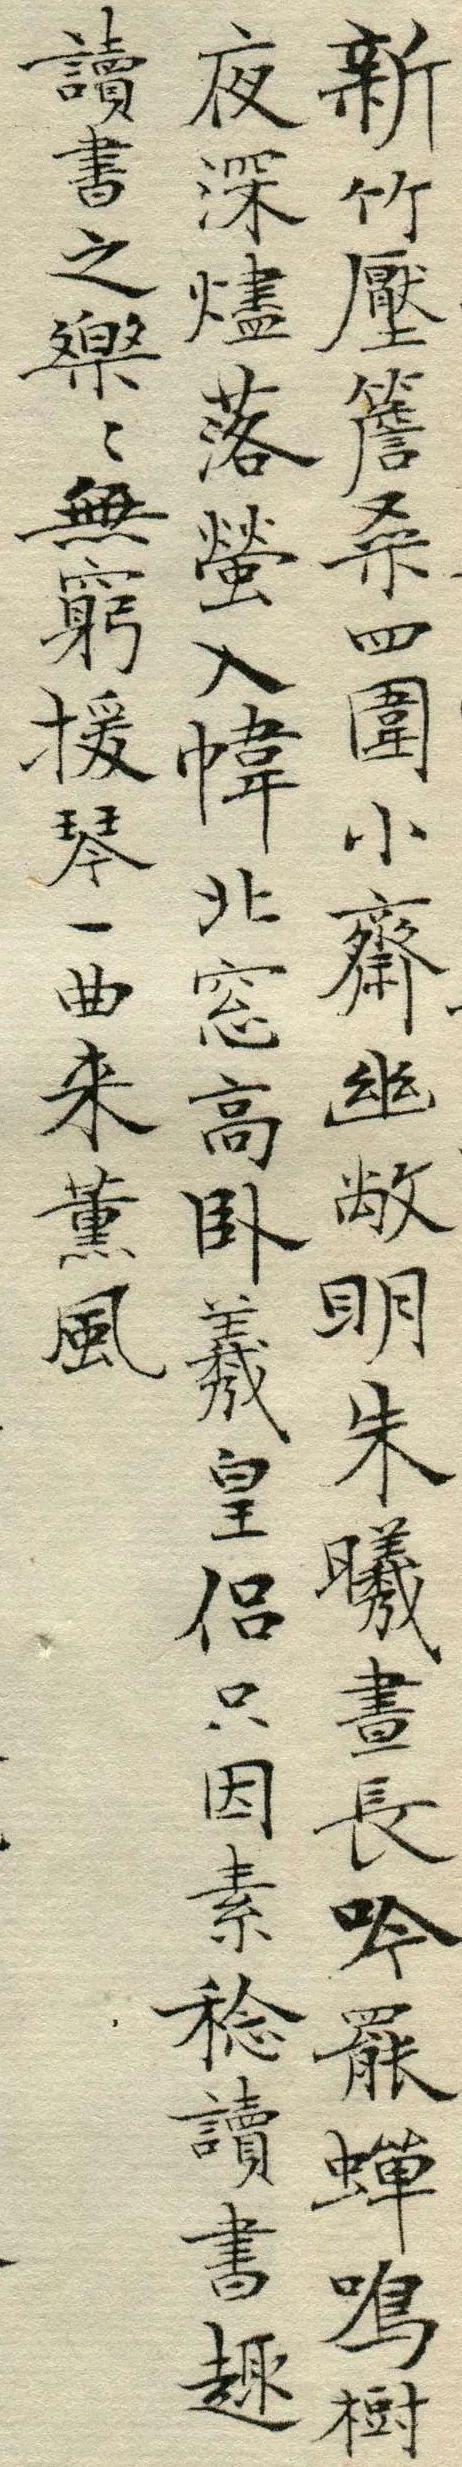 新竹壓簷桑四圍小齋幽敞明朱曦晝長吟罷蟬鳴樹
夜深燼落螢入幃北窓高臥羲皇侣只因素稔讀書趣
讀書之樂〻無窮援琴一曲来薰風